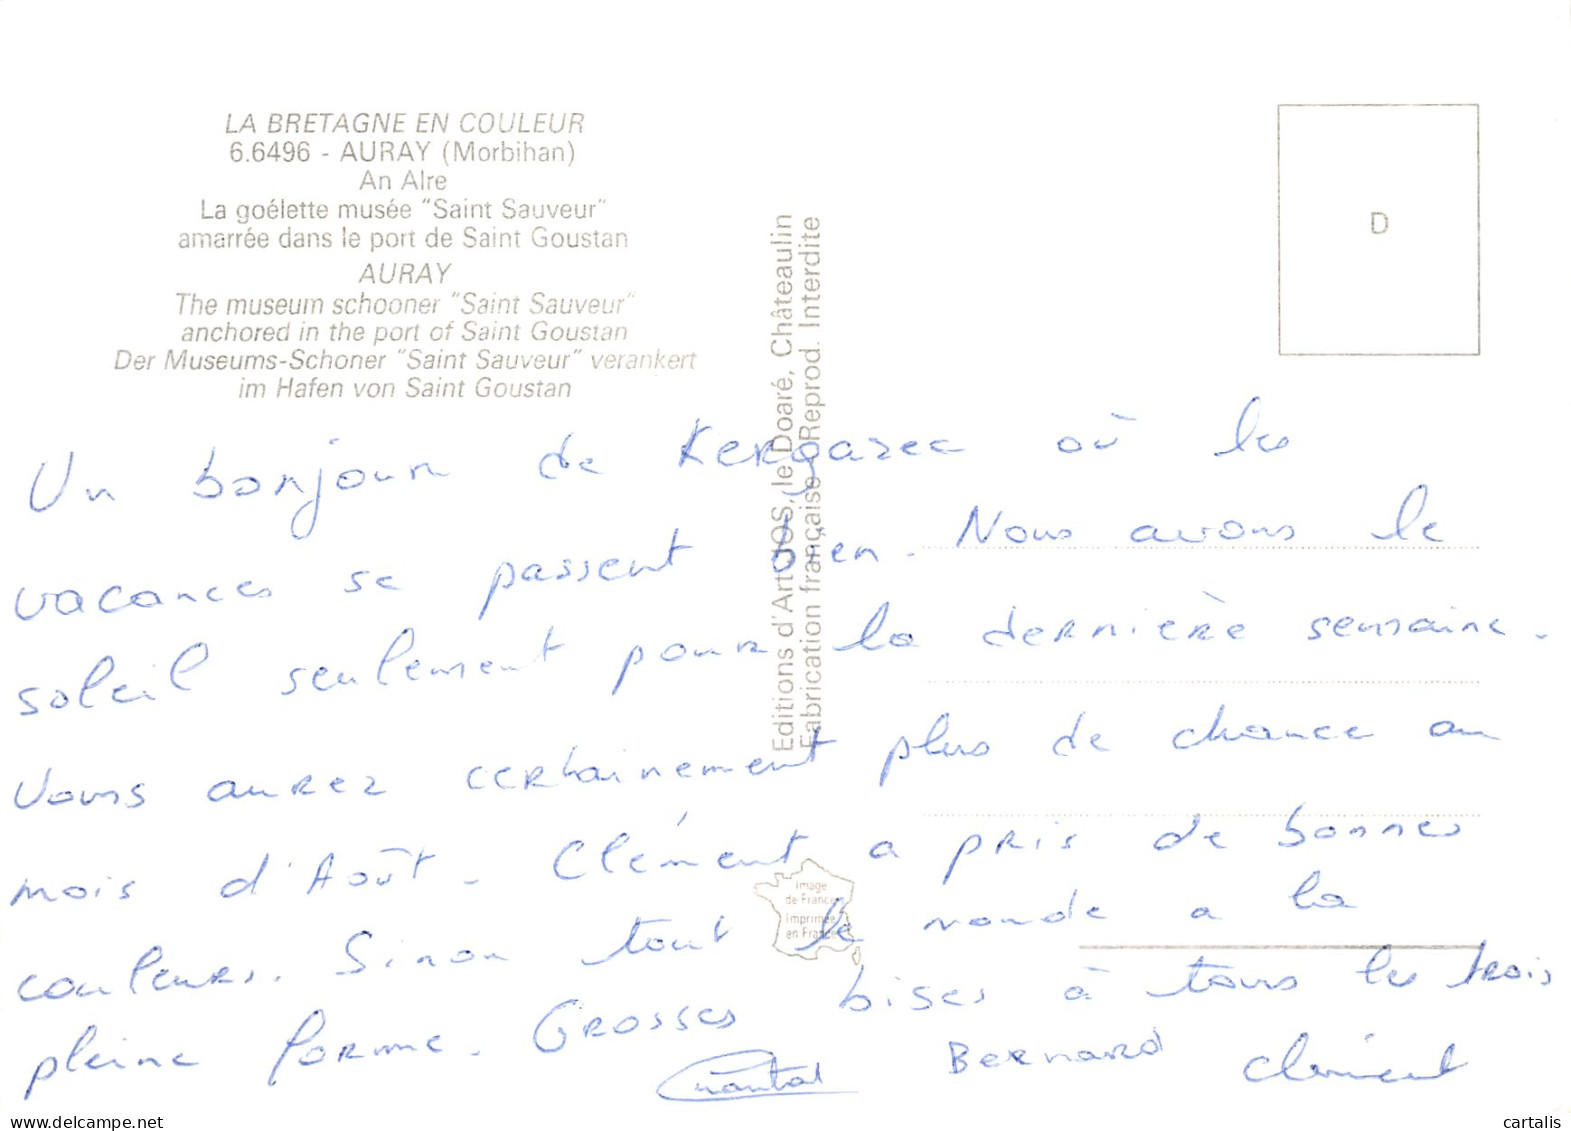 LA BRETAGNE EN COULEUR
6.6496 - AURAY (Morbihan)
An Alre
La goélette musée "Saint Sauveur"
amarrée dans le port de Saint Goustan
AURAY
The museum schooner "Saint Sauveur"
anchored in the port of Saint Goustan
Der Museums-Schoner "Saint Sauveur" verankert
im Hafen von Saint Goustan
Editions d'Art JOS, le Doaré, Châteaulin
Fabrication française - Reprod. Interdite
D
Un bonjour de Kergazec où les
vacances se passent bien. Nous avons le
soleil seulement pour la dernière semaine.
Vous aurez certainement plus de chance au
mois d'Août. Clément a pris de bonnes
couleurs. Sinon tout le monde a la
pleine forme. Grosses bises à tous les trois
Chantal Bernard Clément
Image
de France
Imprimée
en France
cartalis